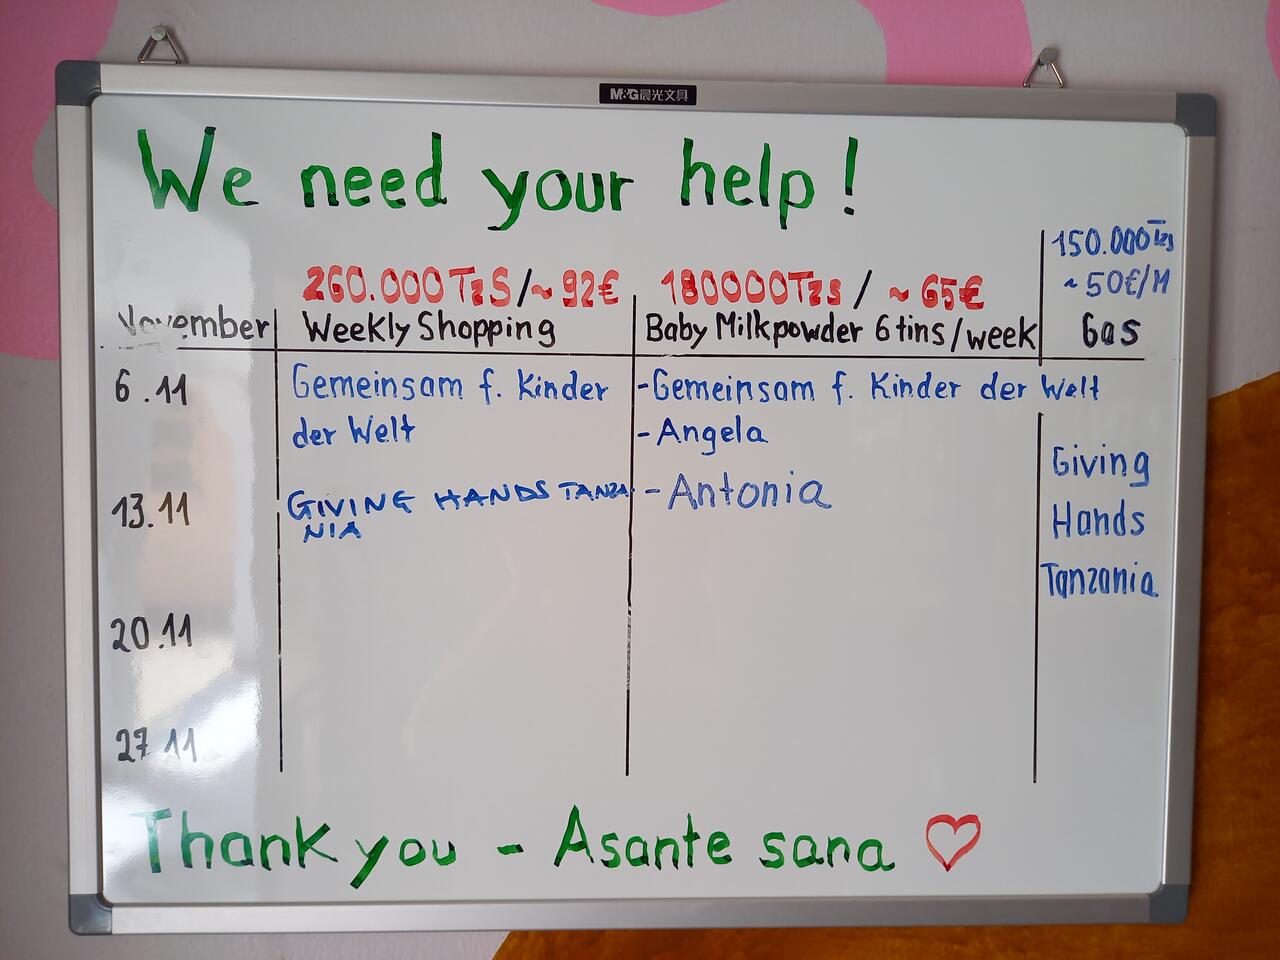 M&G晨光文具
We need your help!
150.000Tzs
~50€/M
260.000TzS/~92€ 180000Tzs / ~65€
November Weekly Shopping Baby Milkpowder 6 tins/week Gas
6.11 Gemeinsam f. Kinder -Gemeinsam f. Kinder der Welt
der Welt -Angela
Giving
13.11 GIVING HANDS TANZA -Antonia
NIA
Hands
Tanzania
20.11
27.11
Thank you - Asante sana